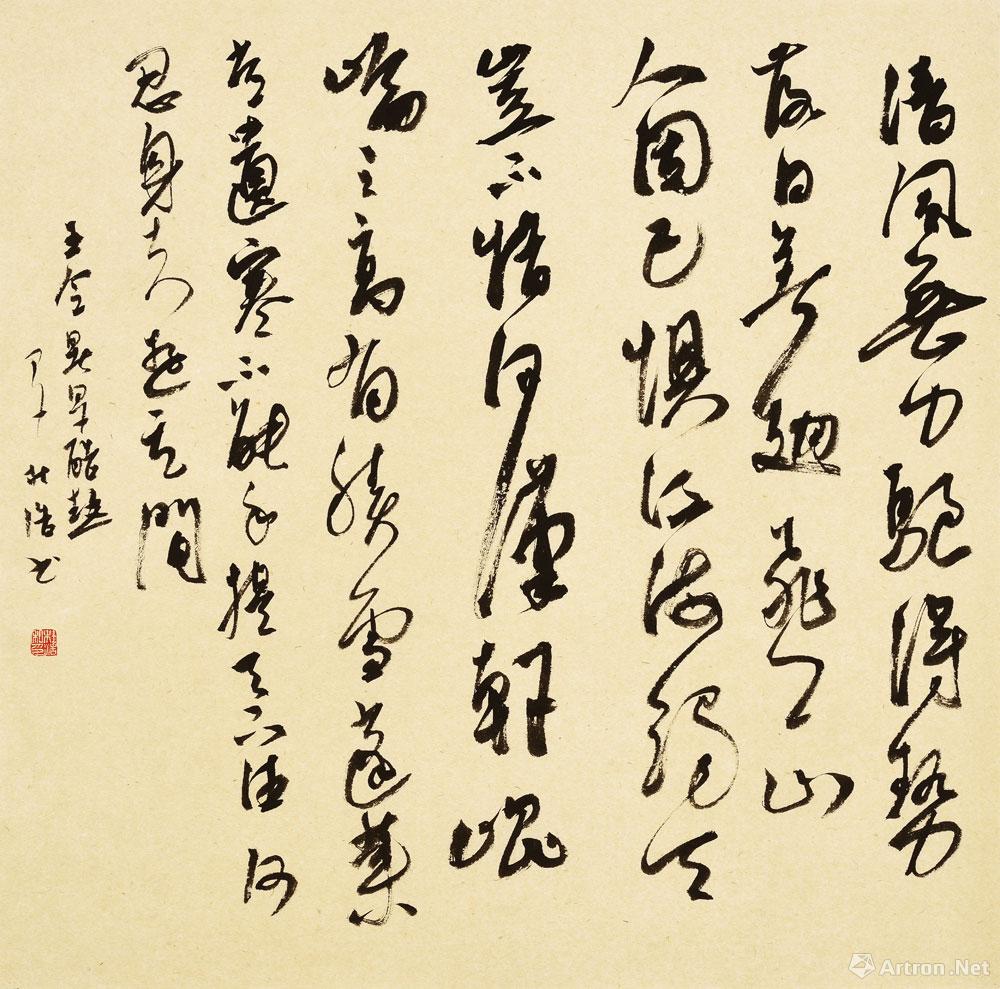 清風無力驅得勢
落日着翅飛上山
人固已懼江海竭天
豈不惜河漢乾崐
崙之高有積雪蓬萊
常遺寒不能手提天下往何
忍身去遊其間
王令暑旱酷熱
杜浩书
Artron.Net